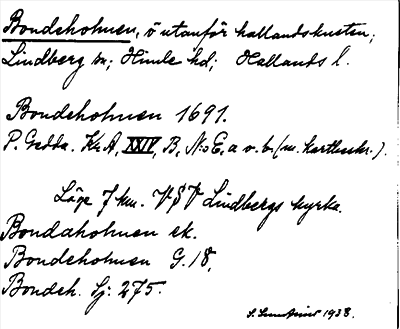 Bondeholmen, ö utanför hallandskusten;
Lindberg sn; Himle hd; Hallands l.
Bondeholmen 1691.
P. Gedda. Kr.A, XXIV, B, N:o E. a v. b. (m. kartbeskr.).
Läge 7 km. VSV Lindbergs kyrka.
Bondaholmen ek.
Bondeholmen G. 18,
Bondeh. Sj: 275.
1938.